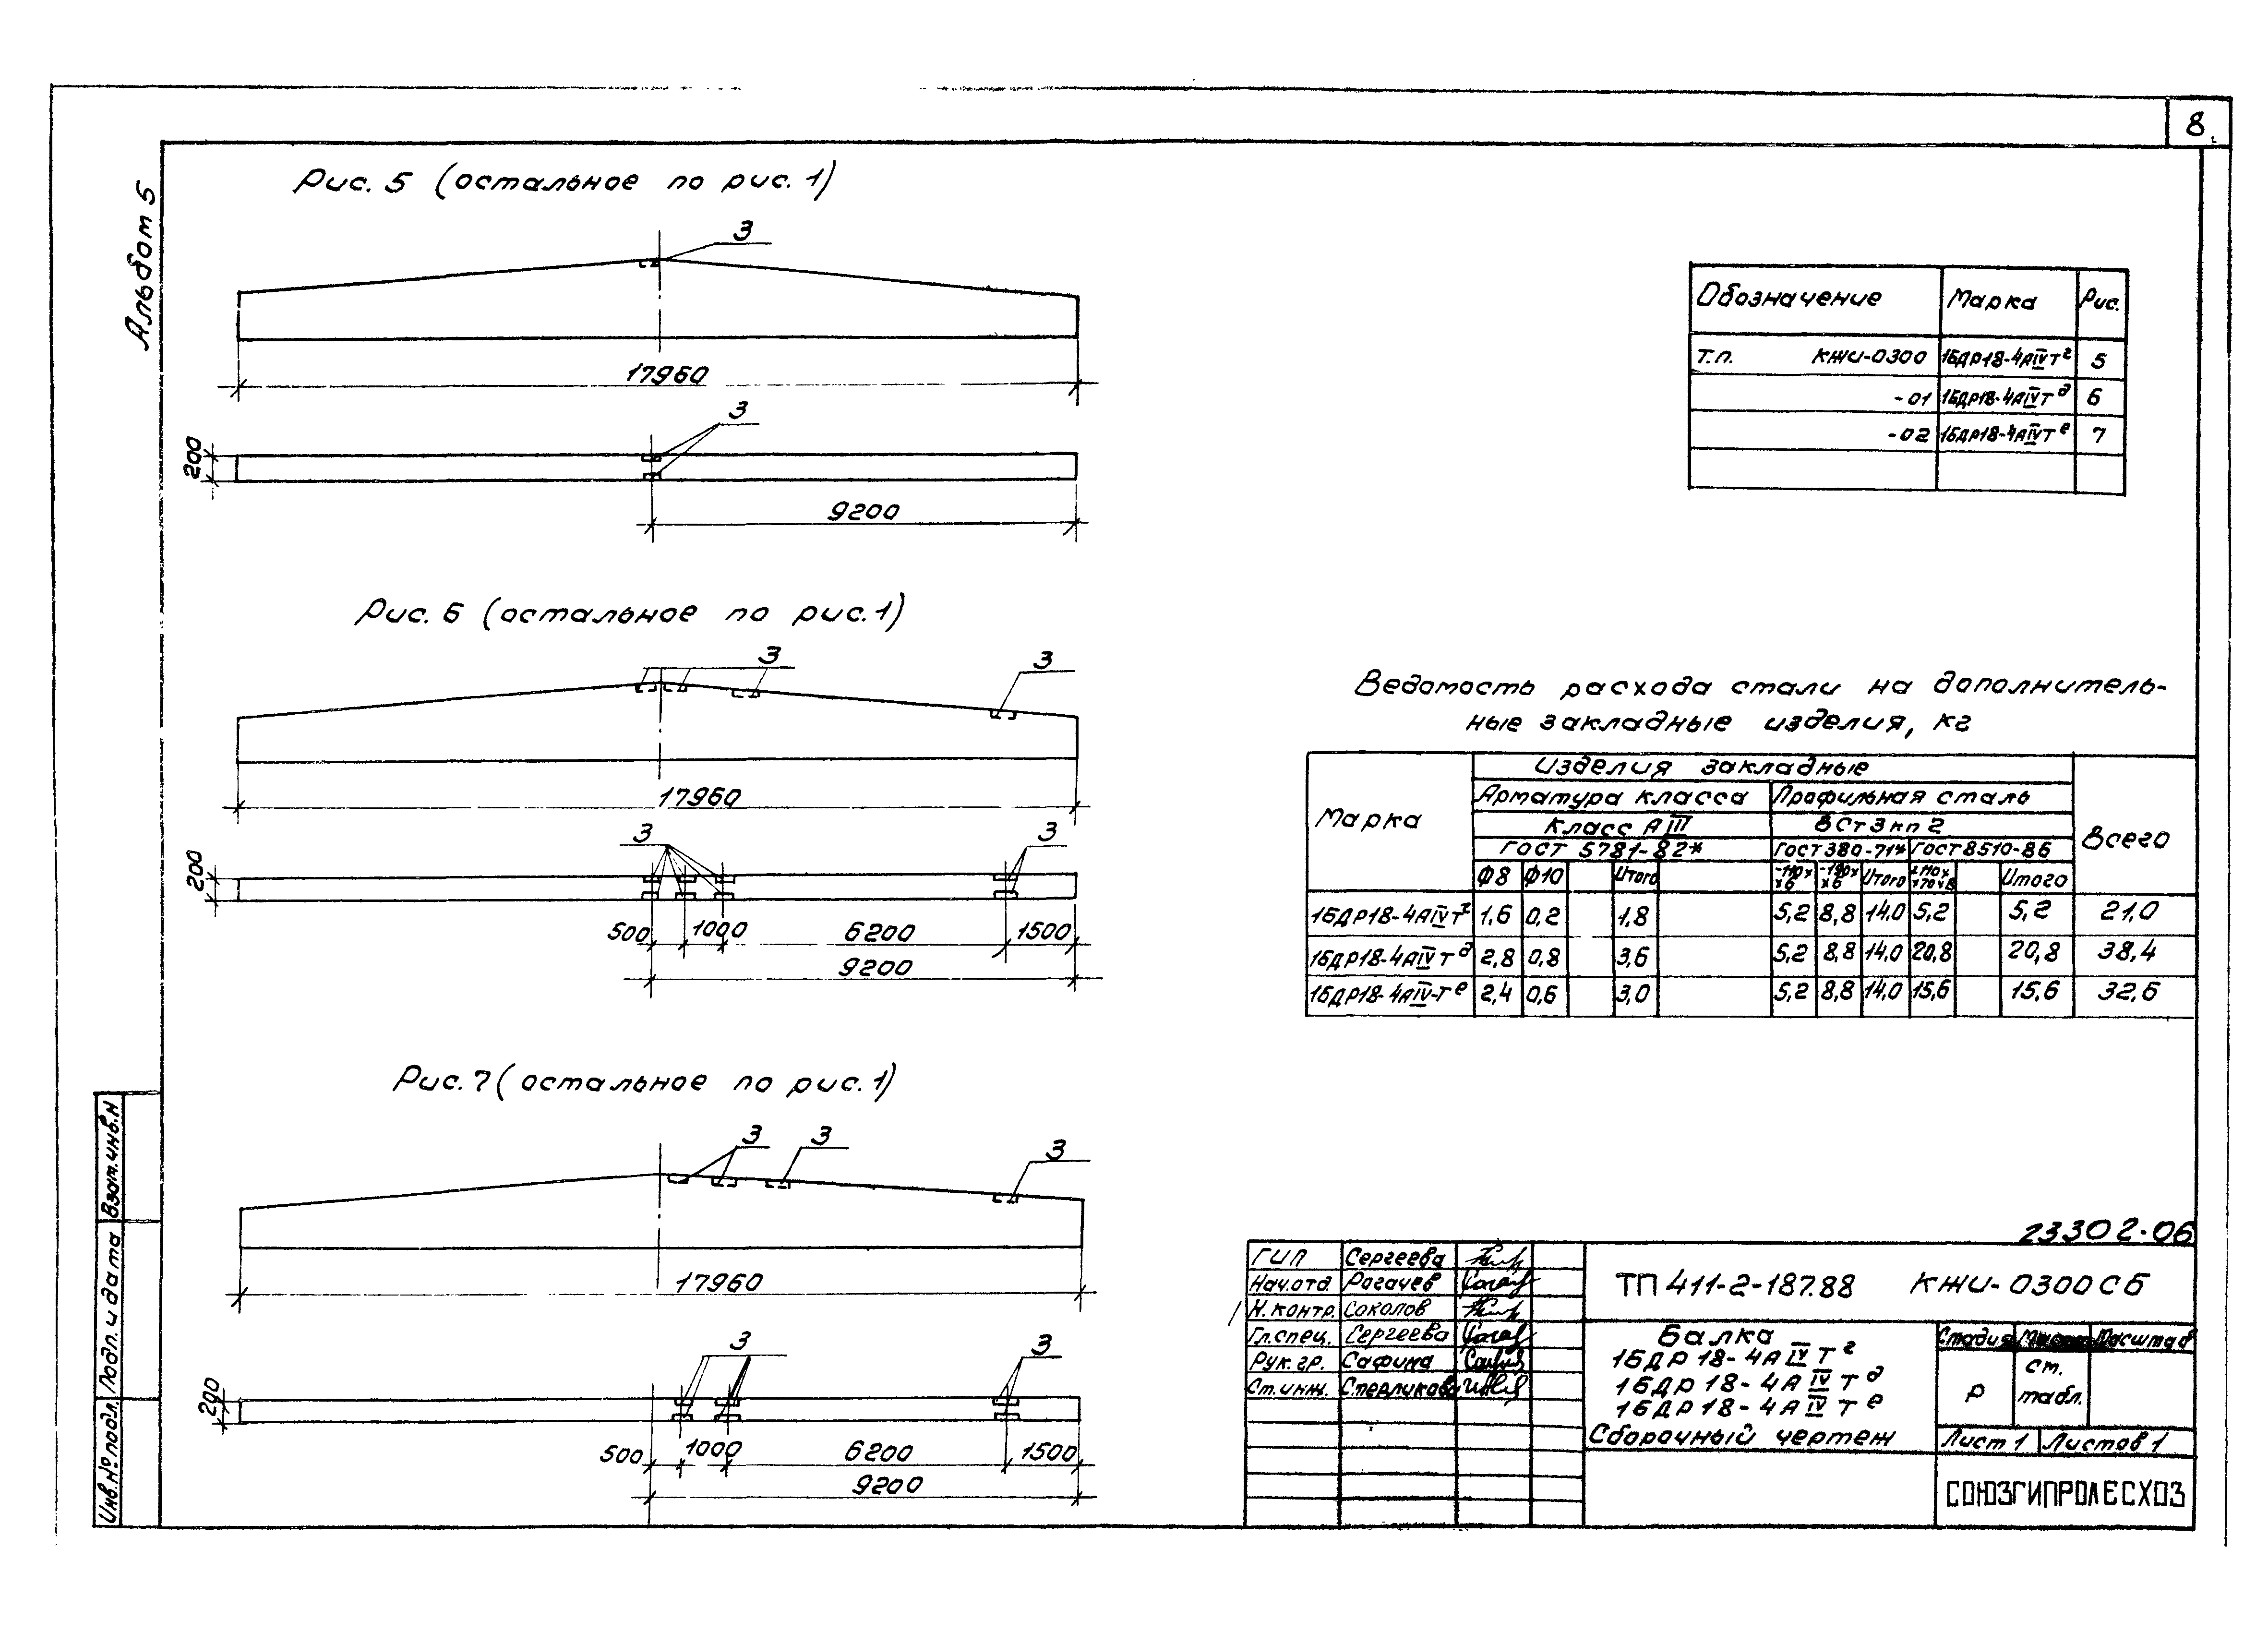 8
Альбом 5
Рис. 5 (остальное по рис. 1)
3
17960
3
200
9200
Рис. 6 (остальное по рис. 1)
3
3
17960
3
3
200
500 1000 6200 1500
9200
Рис. 7 (остальное по рис. 1)
3 3 3
17960
3 3
200
500 1000 6200 1500
9200
Обозначение Марка Рис.
Т.П. КЖИ-0300 1БДР18-4АIVТг 5
-01 1БДР18-4АIVТд 6
-02 1БДР18-4АIVТе 7
Ведомость расхода стали на дополнитель-
ные закладные изделия, кг
Марка Изделия закладные Всего
Арматура класса Профильная сталь
Класс АIII ВСт3кп2
ГОСТ 5781-82* ГОСТ380-71* ГОСТ8510-86
Ф8 Ф10 Итого -110х х6 -190х х6 Итого х70х8 Итого
1БДР18-4АIVТг 1,6 0,2 1,8 5,2 8,8 14,0 5,2 5,2 21,0
1БДР18-4АIVТд 2,8 0,8 3,6 5,2 8,8 14,0 20,8 20,8 38,4
1БДР18-4АIV-Те 2,4 0,6 3,0 5,2 8,8 14,0 15,6 15,6 32,6
23302-06
ГИП Сергеева
Нач.отд. Рогачев
Н.контр. Соколов
Гл.спец. Сергеева
Рук.гр. Сафина
Ст.инж.
ТП 411-2-187.88 КЖИ-0300СБ
Балка
1БДР 18-4АIVТг
1БДР 18-4АIVТд
1БДР 18-4АIVТе
Сборочный чертеж
Стадия Масса Масштаб
Р ст. табл.
Лист 1 Листов 1
СОЮЗГИПРОЛЕСХОЗ
Взам.инв.N
Подп. и дата
Инв.№ подл.